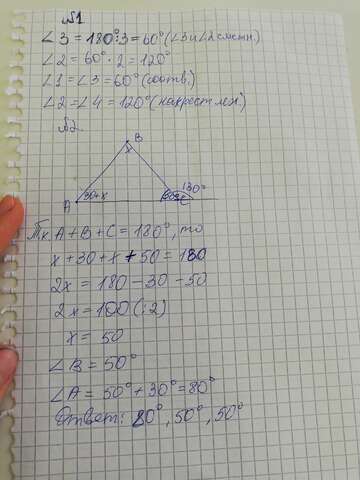 №1
∠3 = 180°:3 = 60° (∠3 и ∠2 смежн.)
∠2 = 60° · 2 = 120°
∠1 = ∠3 = 60° (соотв.)
∠2 = ∠4 = 120° (накрест леж.)
№2.
B
x
A 30+x 50° C 130°
Тк A + B + C = 180°, то
x + 30 + x + 50 = 180
2x = 180 - 30 - 50
2x = 100 (:2)
x = 50
∠B = 50°
∠A = 50° + 30° = 80°
Ответ: 80°, 50°, 50°